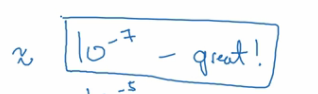 ≈ 10⁻⁷ - great!